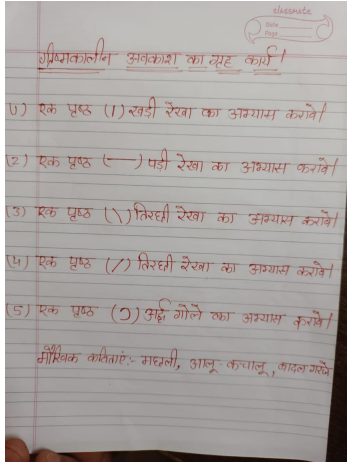 classmate
Date
Page
ग्रीष्मकालीन अवकाश का गृह कार्य।
(1) एक पृष्ठ (।) खड़ी रेखा का अभ्यास करावे।
(2) एक पृष्ठ (—) पड़ी रेखा का अभ्यास करावे।
(3) एक पृष्ठ (\) तिरछी रेखा का अभ्यास करावे।
(4) एक पृष्ठ (/) तिरछी रेखा का अभ्यास करावे।
(5) एक पृष्ठ (Ͻ) अर्द्ध गोले का अभ्यास करावे।
मौखिक कविताएं:- मछली, आलू-कचालू, बादल गरजे